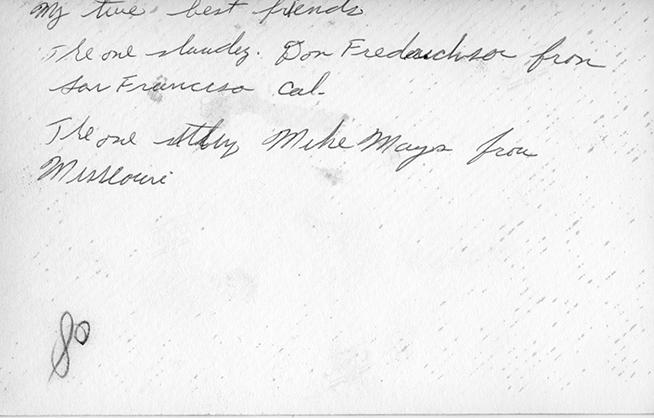 My two best friends
The one standing. Don Fredrichson from
San Francisco Cal-
The one sitting Mike Mays from
Missouri
80